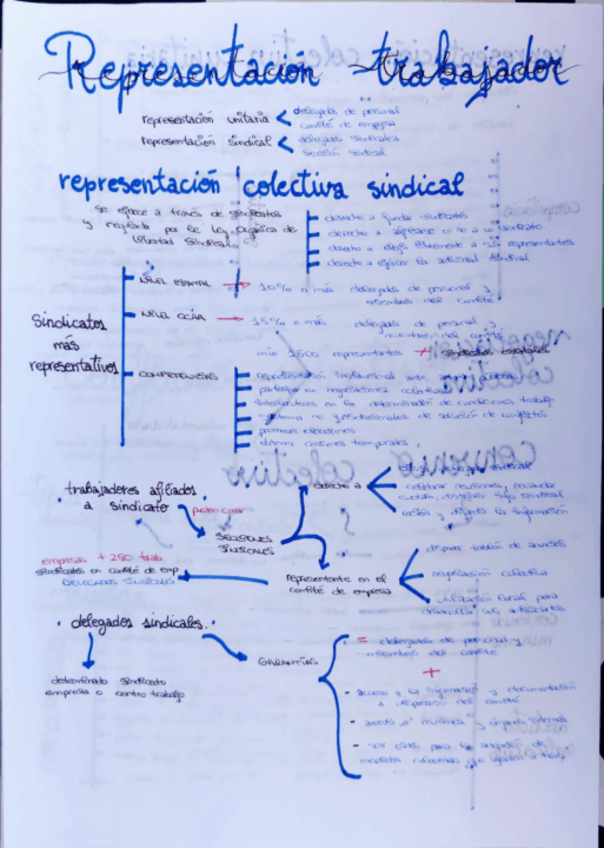 Representación trabajador
representación unitaria < delegados de personal
comité de empresa
representación sindical < delegados sindicales
sección sindical
representación colectiva sindical
se ejerce a través de sindicatos
y regulada por la Ley Orgánica de
Libertad Sindical
derecho a fundar sindicatos
derecho a afiliarse o no a un sindicato
derecho a elegir libremente a sus representantes
derecho a ejercer la actividad sindical
Sindicatos
más
representativos
NIVEL ESTATAL → 10% o más delegados de personal y
miembros del comité
NIVEL CCAA → 15% o más delegados de personal y
miembros del comité
min 1500 representantes + sindicatos estatales
COMPETENCIAS
representación institucional ante
participar en negociaciones colectivas
interlocutores en la determinación de condiciones trabajo
sistema no jurisdiccionales de solución de conflictos
promover elecciones
obtener cesiones temporales
· trabajadores afiliados ·
a sindicato
pueden crear
SECCIONES
SINDICALES
derecho a
celebrar reuniones, recaudar
cuotas, distribuir info sindical
recibir y difundir la información
representante en el
comité de empresa
disponer tablón de anuncios
negociación colectiva
utilización local para
desarrollar sus actividades
empresas + 250 trab
sindicatos en comité de emp
DELEGADOS SINDICALES
· delegados sindicales ·
determinado sindicato
empresa o centro trabajo
GARANTÍAS
= delegados de personal y
miembros del comité
+
- acceso a la información y documentación
a disposición del comité
- asistir a reuniones y órganos internos
- ser oídos para la adopción de
medidas colectivas que afecten a trabaj